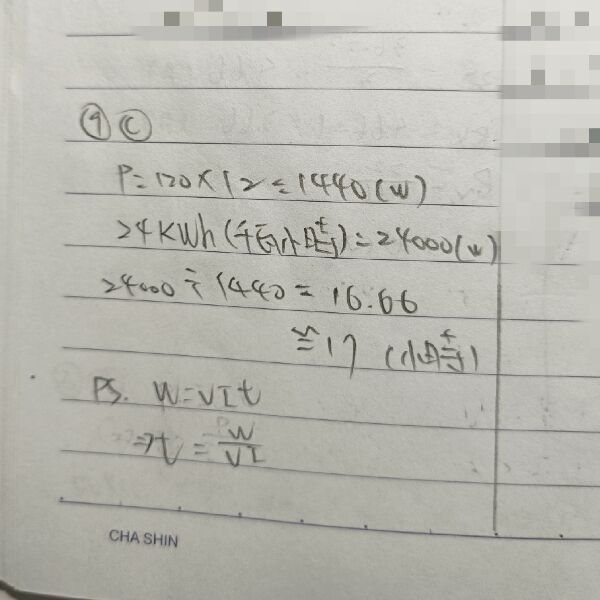 ⑨ Ⓒ
P = 120 × 12 = 1440 (W)
24 KWh (千瓦小時) = 24000 (W)
24000 ÷ 1440 = 16.66
≅ 17 (小時)
PS. W = VIt
⇒ t = W/VI
CHA SHIN